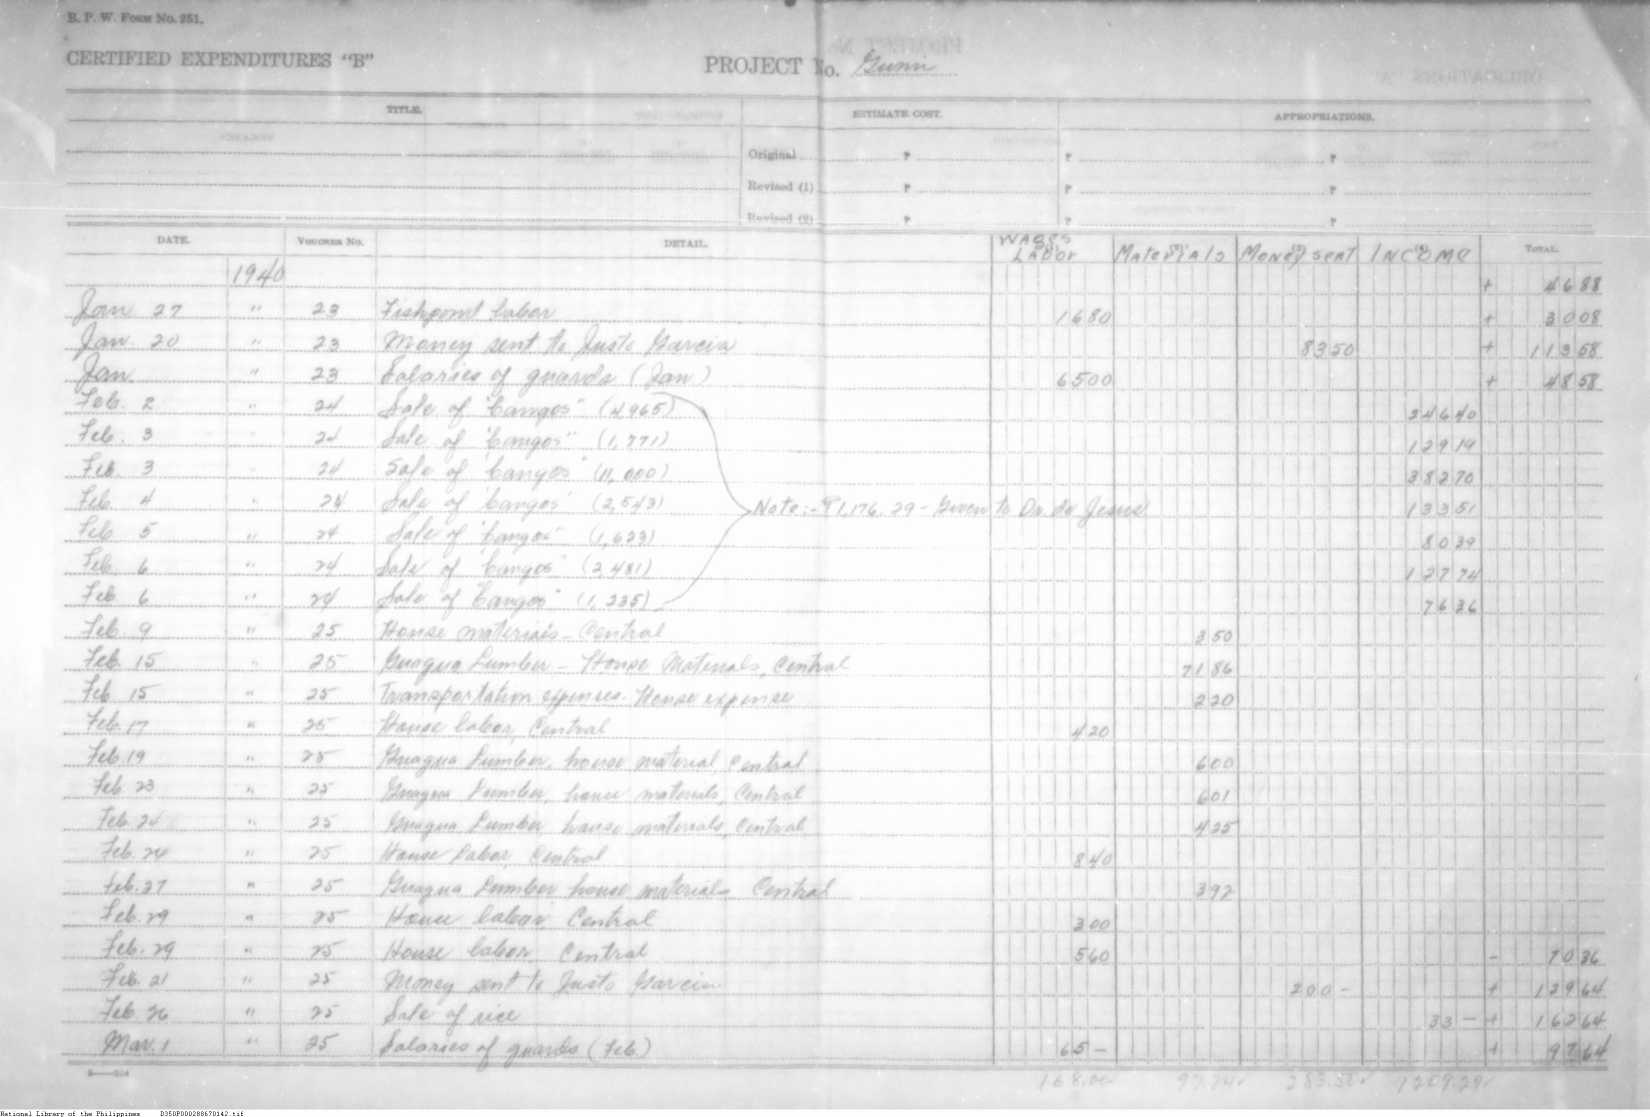 B. P. W. Form No. 251.
CERTIFIED EXPENDITURES "B" PROJECT No. Gunn
TITLE. ESTIMATE COST. APPROPRIATIONS.
Original ₱ ₱ ₱
Revised (1) ₱ ₱ ₱
Revised (2) ₱ ₱ ₱
DATE. VOUCHER NO. DETAIL. WAGES LABOR Materials Money sent INCOME TOTAL.
1940 + 46 88
Jan 27 " 23 Fishpond labor 16 80 + 30 08
Jan. 20 " 23 Money sent to Justo Garcia 83 50 + 113 58
Jan. " 23 Salaries of guards (Jan) 65 00 + 48 58
Feb. 2 " 24 Sale of "bangos" (4,965) 246 40
Feb. 3 24 Sale of "bangos" (1,771) 129 19
Feb. 3 24 Sale of "bangos" (11,000) 382 70
Feb. 4 " 24 Sale of "bangos" (2,543) Note:- ₱1,176.29 - Given to Dr. de Jesus 133 51
Feb. 5 " 24 Sale of "bangos" (1,623) 80 39
Feb. 6 " 24 Sale of "bangos" (2,481) 127 74
Feb. 6 " 24 Sale of "bangos" (1,235) 76 36
Feb. 9 " 25 House materials - Central 3 50
Feb. 15 " 25 Guagua Lumber - House Materials, Central 71 86
Feb. 15 " 25 Transportation expenses - House expense 2 20
Feb. 17 " 25 House labor, Central 4 20
Feb. 19 " 25 Guagua Lumber, house material, Central 6 00
Feb. 23 " 25 Guagua Lumber, house materials, Central 6 01
Feb. 24 " 25 Guagua Lumber house materials, Central 4 25
Feb. 24 " 25 House labor, Central 8 40
Feb. 27 " 25 Guagua Lumber house materials Central 3 92
Feb. 29 " 25 House labor Central 3 00
Feb. 29 " 25 House labor, Central 5 60 - 70 36
Feb. 21 " 25 Money sent to Justo Garcia 200 - + 129 64
Feb. 26 " 25 Sale of rice 33 - + 162 64
Mar. 1 " 25 Salaries of guards (Feb.) 65 - + 97 64
168.00 97.74 283.50 1209.29
National Library of the Philippines D350P000288670142.tif